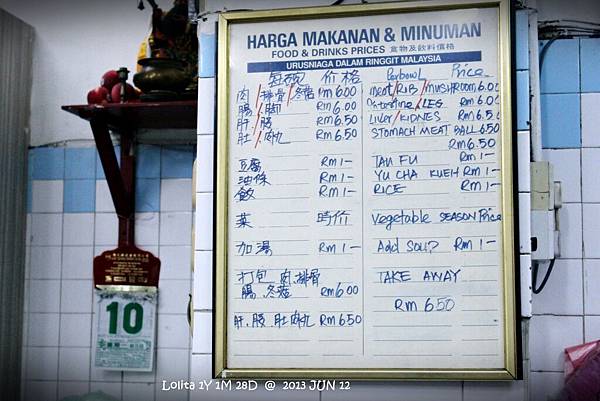 HARGA MAKANAN & MINUMAN
FOOD & DRINKS PRICES 食物及飲料價格
URUSNIAGA DALAM RINGGIT MALAYSIA
每碗 价格 Perbowl Price
肉/排骨/冬菇 RM 6.00 meat/RIB/MUSHROOM 6.00
腸/脚 RM 6.00 intestine/LEG RM 6.00
肝/腰 RM 6.50 Liver/KIDNES RM 6.50
肚/肉丸 RM 6.50 STOMACH MEAT BALL 6.50
RM 6.50
豆腐 RM 1- TAU FU RM 1-
油條 RM 1- YU CHA KUEH RM 1-
飯 RM 1- RICE RM 1-
菜 時价 Vegetable SEASON Price
加湯 RM 1- Add Soup RM 1-
打包 肉.排骨 TAKE AWAY
腸.冬菇 RM 6.00
RM 6.50
肝.腰.肚.肉丸 RM 6.50
10
Lolita 1Y 1M 28D @ 2013 JUN 12